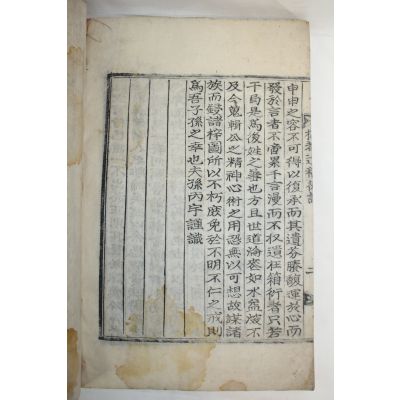 申申之容不可得以復承而其遺芬賸馥渾於心而
發於言者不啻累千言漫而不收遺在箱衍者只若
干局是爲後姓之羞也方且世道淪喪如水益深不
及今蒐輯公之精神心術之用恐無以可想故謀諸
族而鋟諸梓圖所以不朽庶免於不明不仁之戒則
爲吾子孫之幸也夫孫丙宇謹識
二